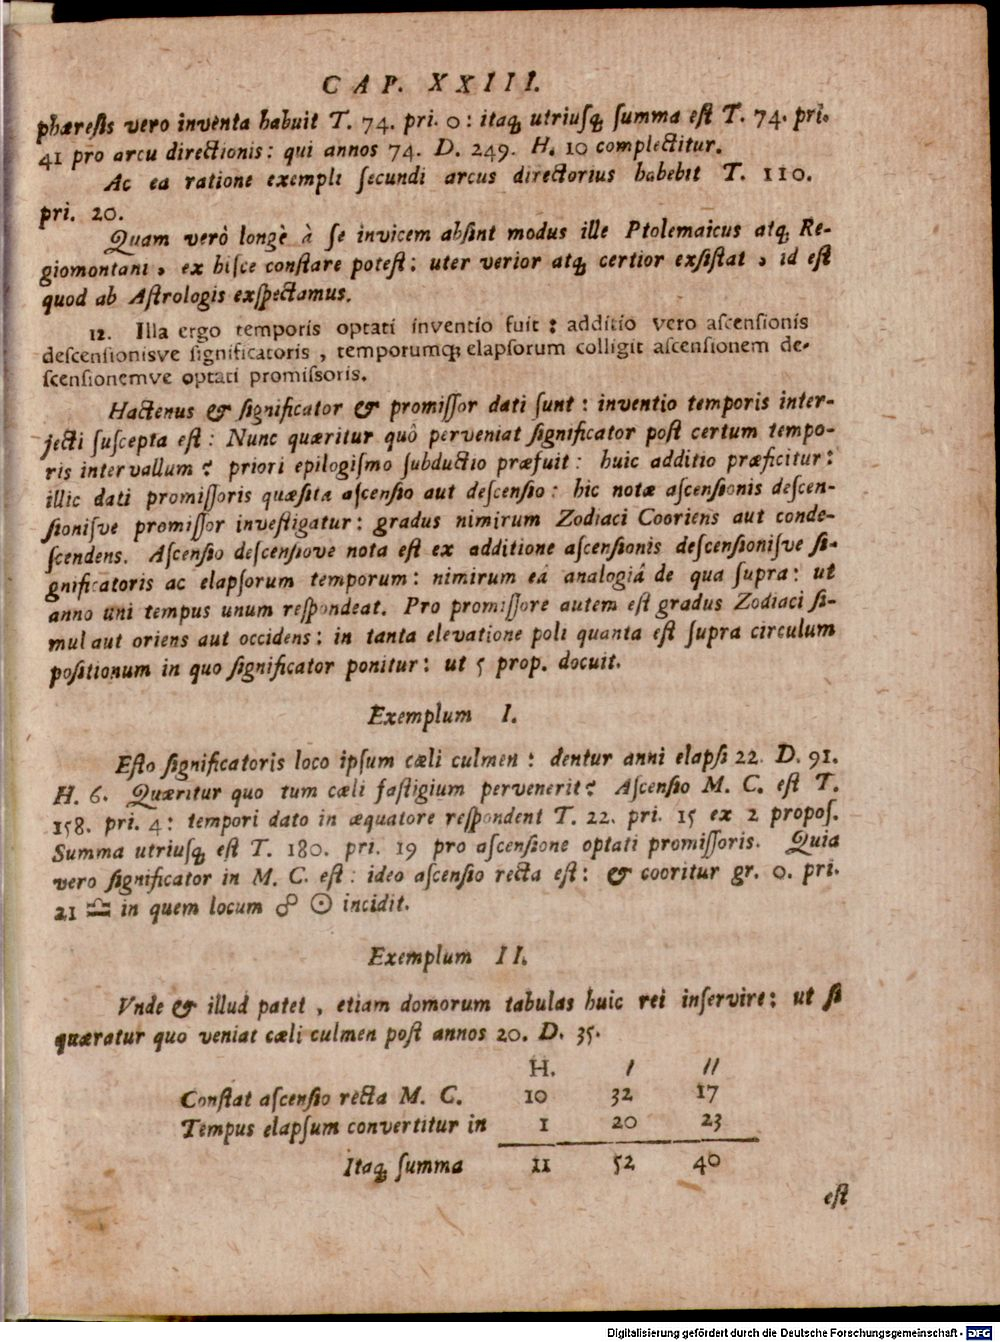 CAP. XXIII.
phæresis vero inventa habuit T. 74. pri. 0: itaq; utriusq; summa est T. 74. pri.
41 pro arcu directionis: qui annos 74. D. 249. H. 10 complectitur.
Ac ea ratione exempli secundi arcus directorius habebit T. 110.
pri. 20.
Quam verò longè à se invicem absint modus ille Ptolemaicus atq; Re-
giomontani, ex hisce constare potest: uter verior atq; certior exsistat, id est
quod ab Astrologis exspectamus.
12. Illa ergo temporis optati inventio fuit: additio vero ascensionis
descensionisve significatoris, temporumq; elapsorum colligit ascensionem de-
scensionemve optati promissoris.
Hactenus & significator & promissor dati sunt: inventio temporis inter-
jecti suscepta est: Nunc quæritur quò perveniat significator post certum tempo-
ris intervallum? priori epilogismo subductio præfuit: huic additio præficitur:
illic dati promissoris quæsita ascensio aut descensio: hic notæ ascensionis descen-
sionisve promissor investigatur: gradus nimirum Zodiaci Cooriens aut conde-
scendens. Ascensio descensiove nota est ex additione ascensionis descensionisve si-
gnificatoris ac elapsorum temporum: nimirum eâ analogiâ de qua supra: ut
anno uni tempus unum respondeat. Pro promissore autem est gradus Zodiaci si-
mul aut oriens aut occidens: in tanta elevatione poli quanta est supra circulum
positionum in quo significator ponitur: ut 5 prop. docuit.
Exemplum I.
Esto significatoris loco ipsum cæli culmen: dentur anni elapsi 22. D. 91.
H. 6. Quæritur quo tum cæli fastigium pervenerit? Ascensio M. C. est T.
158. pri. 4: tempori dato in æquatore respondent T. 22. pri. 15 ex 2 propos.
Summa utriusq; est T. 180. pri. 19 pro ascensione optati promissoris. Quia
vero significator in M. C. est: ideo ascensio recta est: & cooritur gr. 0. pri.
21 ♎ in quem locum ☍ ☉ incidit.
Exemplum II.
Vnde & illud patet, etiam domorum tabulas huic rei inservire: ut si
quæratur quo veniat cæli culmen post annos 20. D. 35.
H. ′ ″
Constat ascensio recta M. C. 10 32 17
Tempus elapsum convertitur in 1 20 23
Itaq; summa 11 52 40
est
Digitalisierung gefördert durch die Deutsche Forschungsgemeinschaft - DFG